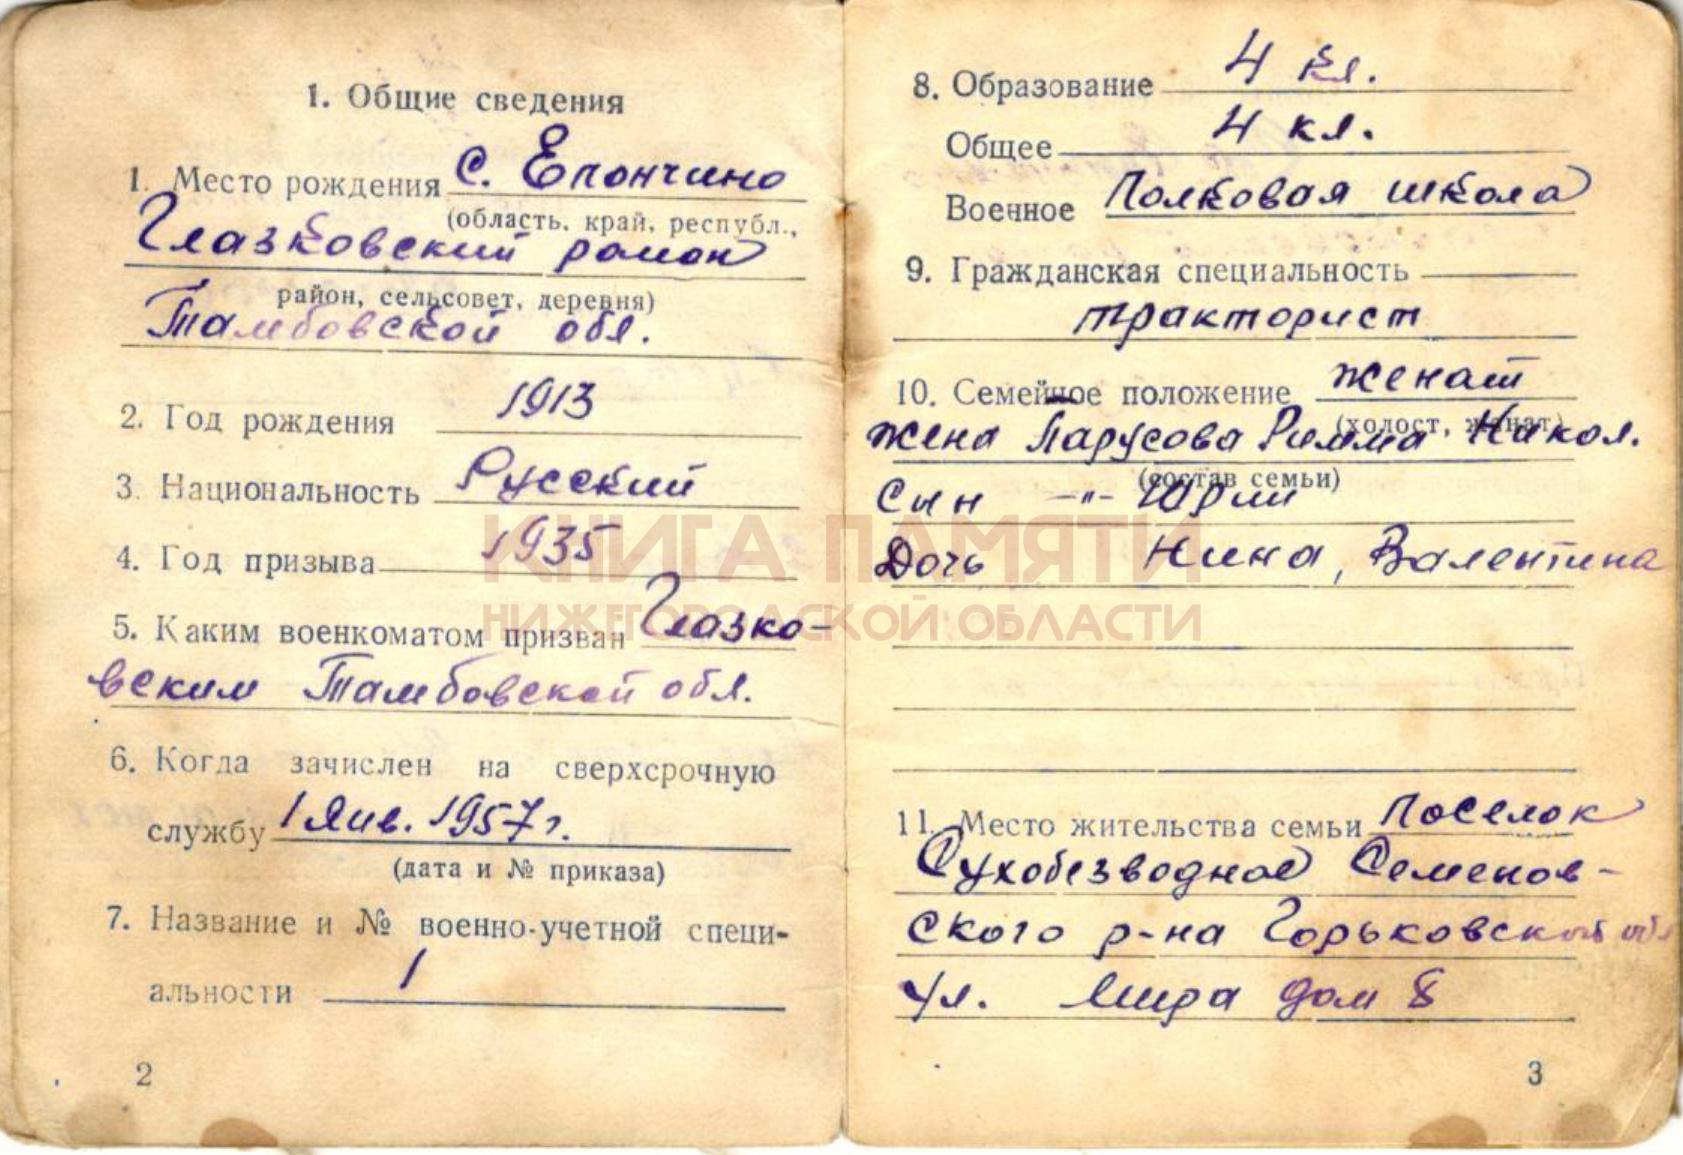 1. Общие сведения
1. Место рождения с. Епончино
(область, край, республ.,
Глазковский район
район, сельсовет, деревня)
Тамбовской обл.
2. Год рождения 1913
3. Национальность Русский
4. Год призыва 1935
5. Каким военкоматом призван Глазко-
вским Тамбовской обл.
6. Когда зачислен на сверхсрочную
службу 1 Янв. 1957 г.
(дата и № приказа)
7. Название и № военно-учетной специ-
альности 1
2
8. Образование 4 кл.
Общее 4 кл.
Военное Полковая школа
9. Гражданская специальность
тракторист
10. Семейное положение женат
(холост, женат)
жена Парусова Римма Никол.
(состав семьи)
Сын -"- Юрии
Дочь Нина, Валентина
11. Место жительства семьи поселок
Сухобезводное Семенов-
ского р-на Горьковской обл
ул. Мира дом 8
3
КНИГА ПАМЯТИ
НИЖЕГОРОДСКОЙ ОБЛАСТИ